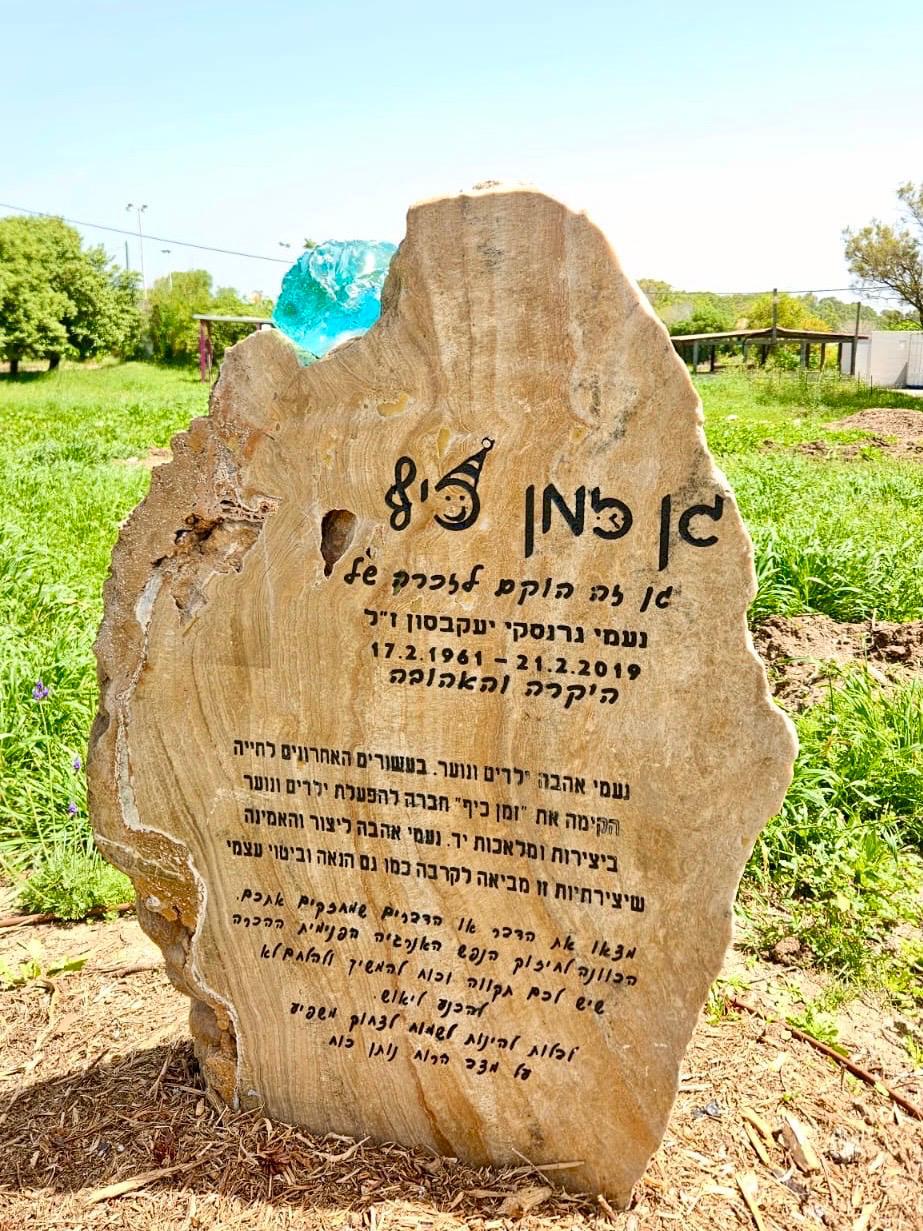 גן זמן כיף
גן זה הוקם לזכרה של
נעמי גרנסקי יעקבסון ז"ל
17.2.1961 – 21.2.2019
היקרה והאהובה
נעמי אהבה ילדים ונוער. בעשורים האחרונים לחייה
הקימה את "זמן כיף" חברה להפעלת ילדים ונוער
ביצירות ומלאכות יד. נעמי אהבה ליצור והאמינה
שיצירתיות זו מביאה לקרבה כמו גם הנאה וביטוי עצמי
מצאו את הדבר או הדברים שמחזקים אתכם.
הכוונה לחיזוק הנפש האנרגיה הפנימית ההכרה
שיש לכם תקווה וכוח להמשיך ולהלחם לא
להכנע ליאוש.
לבלות להינות לשמוח לצחוק משפיע
על מצב הרוח נותן כוח